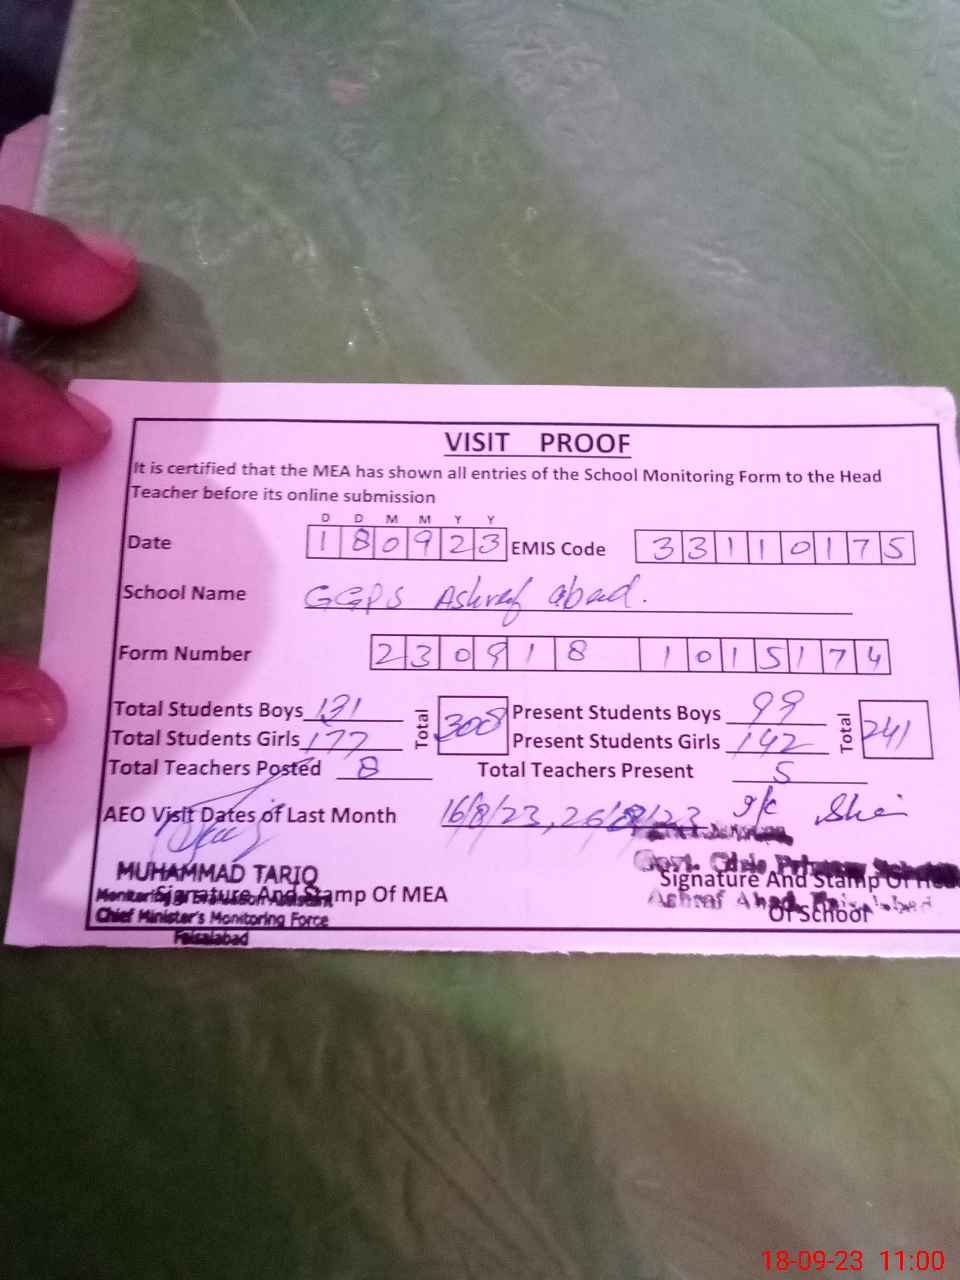 VISIT PROOF
It is certified that the MEA has shown all entries of the School Monitoring Form to the Head
Teacher before its online submission
D D M M Y Y
Date 1 8 0 9 2 3 EMIS Code 3 3 1 1 0 1 7 5
School Name GGPS Ashraf abad.
Form Number 2 3 0 9 1 8 1 0 1 5 1 7 4
Total Students Boys 131 Total 308 Present Students Boys 99 Total 241
Total Students Girls 177 Present Students Girls 142
Total Teachers Posted 8 Total Teachers Present 5
AEO Visit Dates of Last Month 16/8/23, 26/8/23
MUHAMMAD TARIQ
Monitoring & Evaluation Assistant
Signature And Stamp Of MEA
Chief Minister's Monitoring Force
Faisalabad
Govt. Girls Primary School
Signature And Stamp Of Head
Ashraf Abad Faisalabad
Of School
18-09-23 11:00